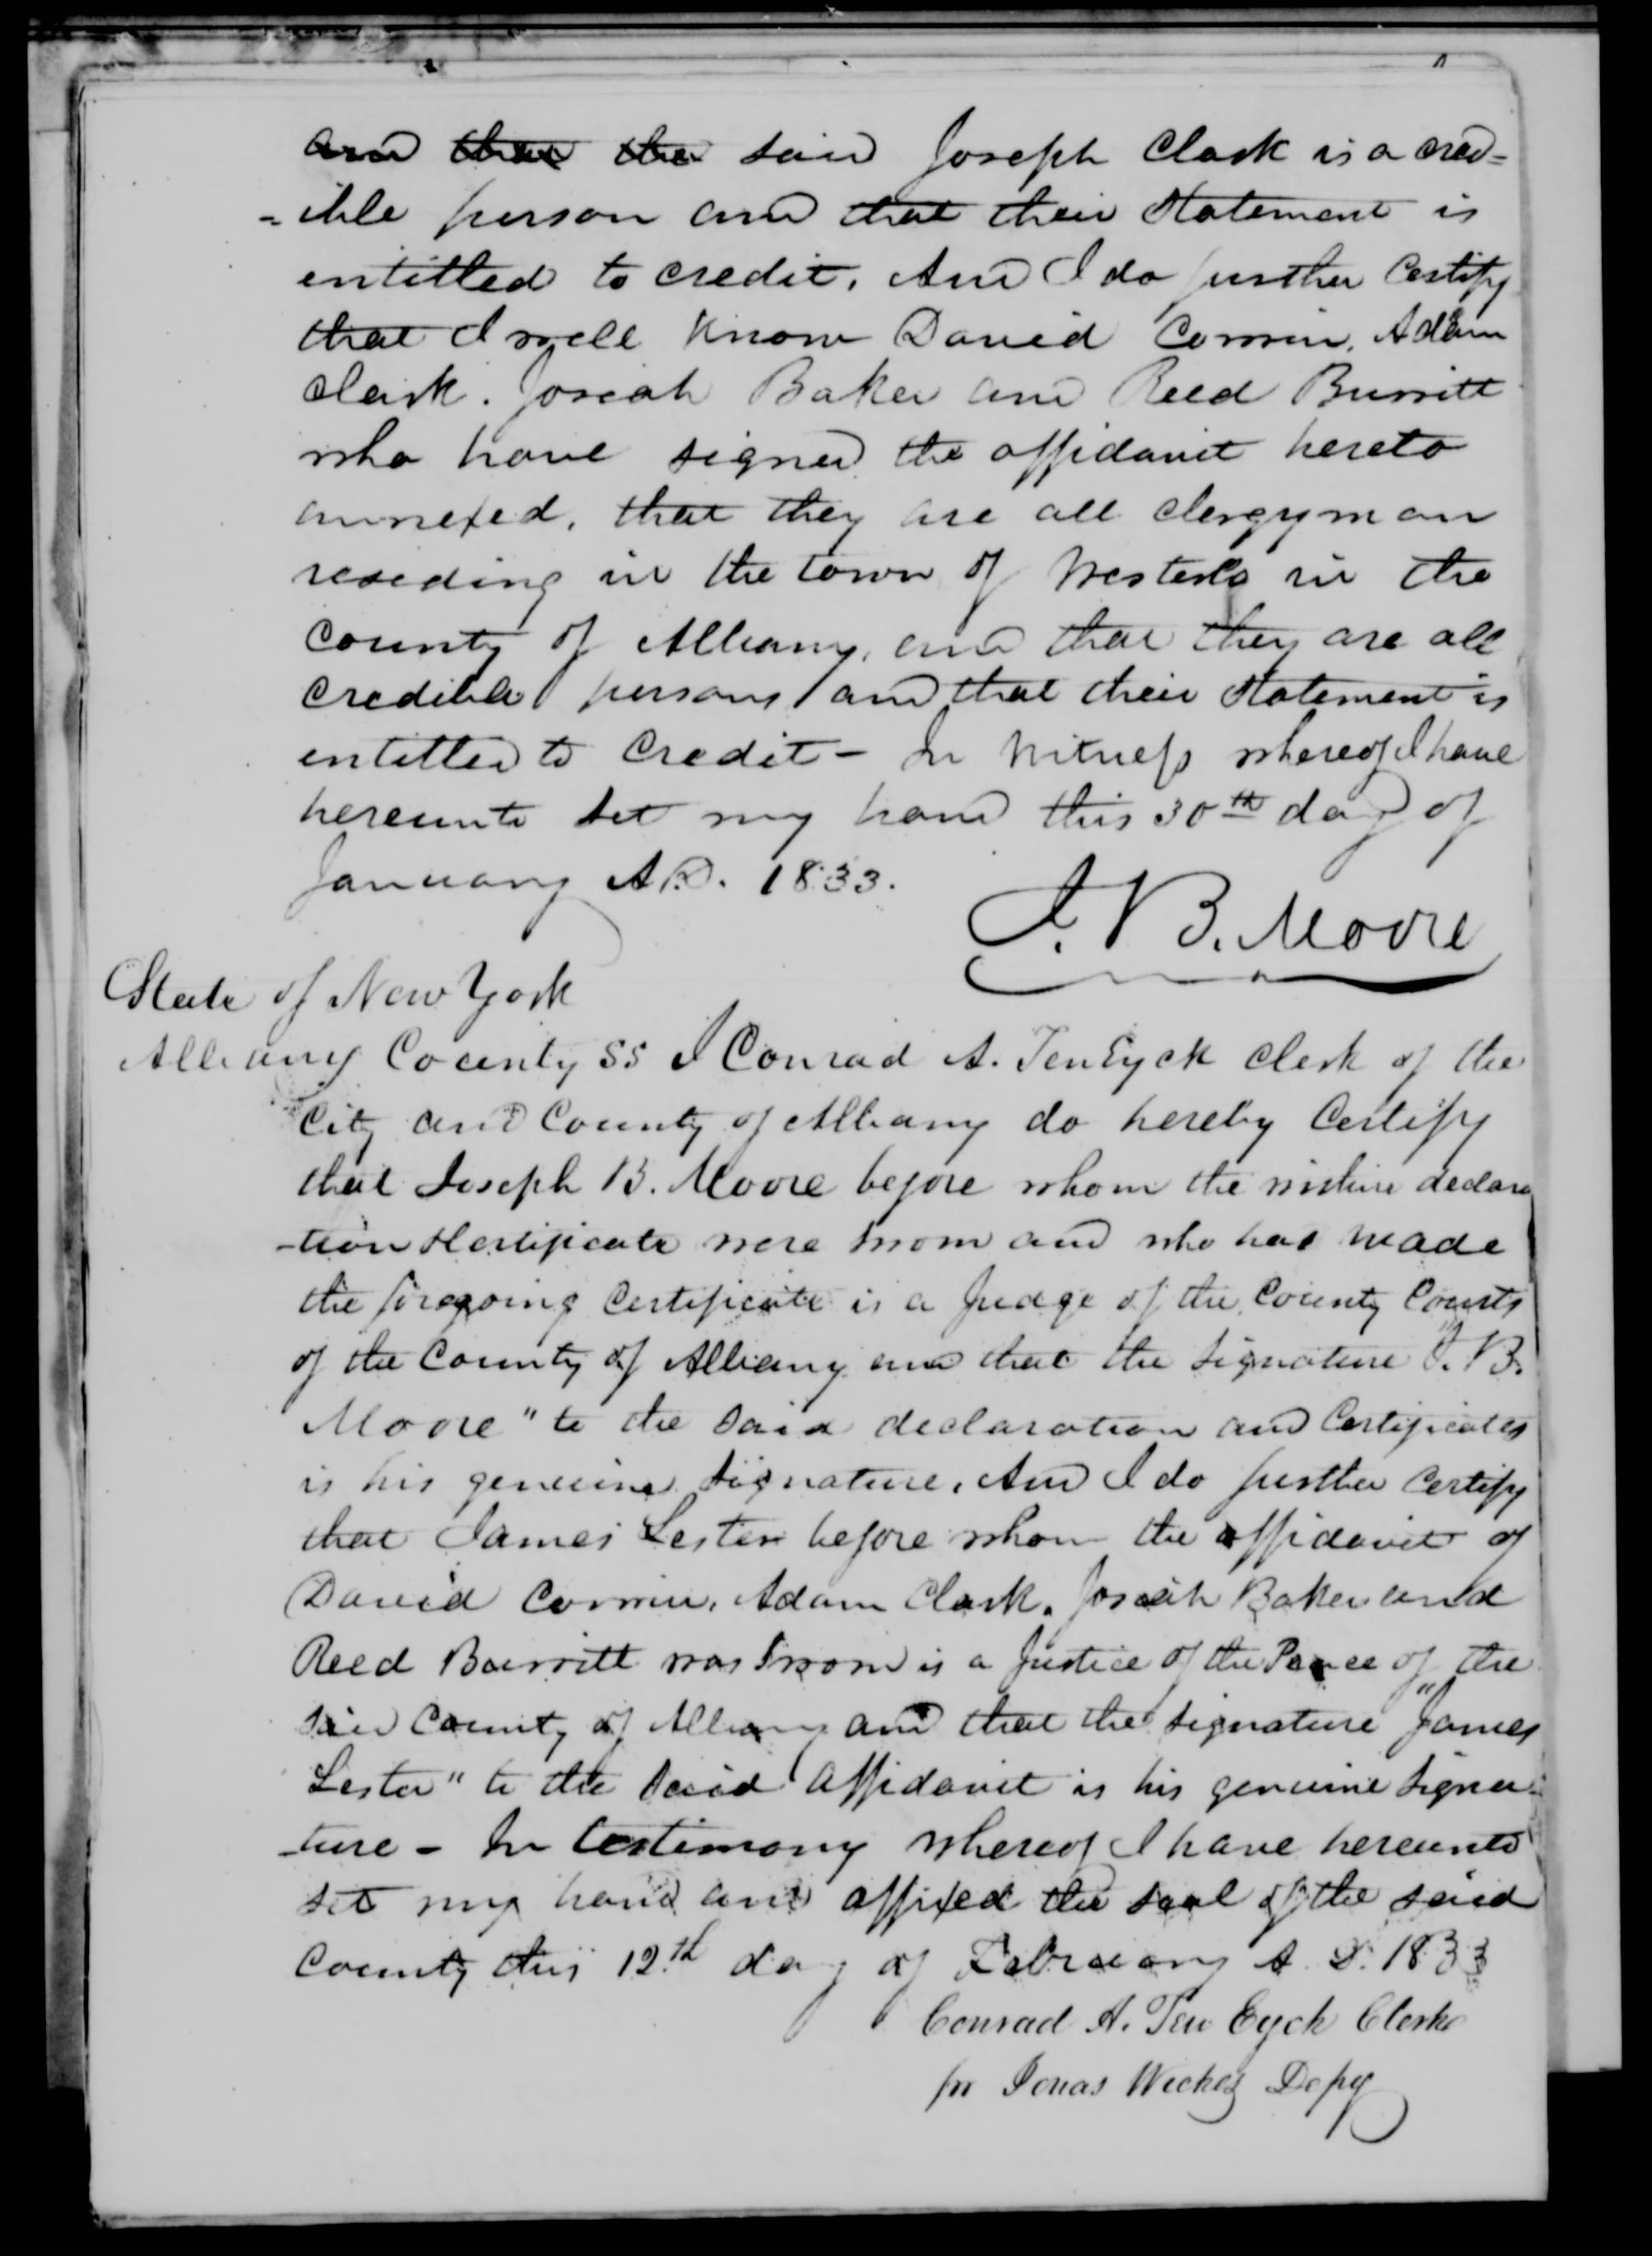 and that the said Joseph Clark is a cred=
=ible person and that their statement is
entitled to credit. And I do further Certify
that I well know David Cornin, Adam
Clark. Josiah Baker and Reed Burritt
who have signed the affidavit hereto
annexed, that they are all clergyman
reseding in the town of Westerlo in the
County of Albany, and that they are all
Credible persons and that their statement is
entitled to Credit - In Witness whereof I have
hereunto set my hand this 30th day of
January A.D. 1833.
J. B. Moore
State of New York
Albany County SS I Conrad A. TenEyck clerk of the
City and County of Albany do hereby Certify
that Joseph B. Moore before whom the within declara
-tion & Certificate were sworn and who has made
the foregoing Certificate is a Judge of the County Courts
of the County of Albany and that the signature J. B.
Moore" to the said declaration and Certificates
is his genuine signature. And I do further Certify
that James Lester before whom the affidavit of
David Cornin, Adam Clark, Josiah Baker and
Reed Burritt was sworn is a Justice of the Peace of the
said County of Albany and that the signature "James
Lester" to the said affidavit is his genuine signa-
-ture - In testimony whereof I have hereunto
set my hand and affixed the seal of the said
County this 12th day of February A. D. 1833
Conrad A. Ten Eyck Clerk
pr Jonas Wickes Depy